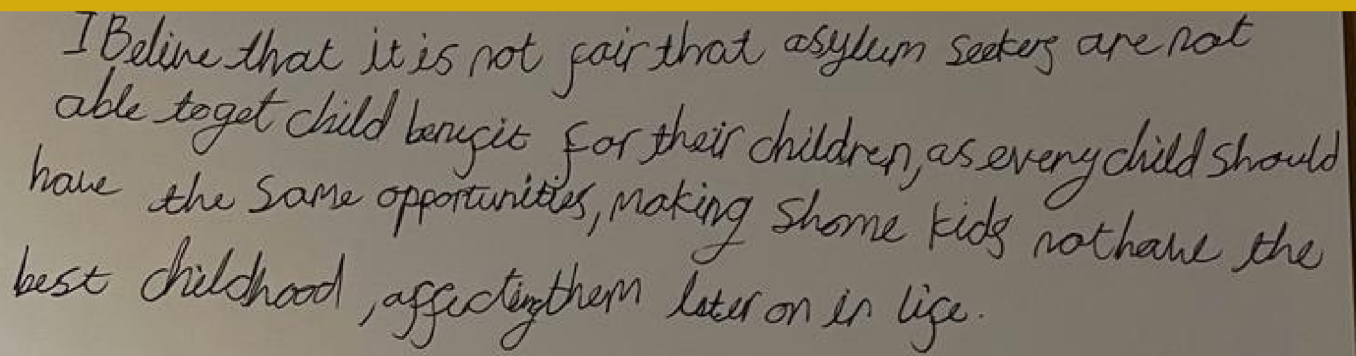 I Belive that it is not fair that asylum seekers are not
able to get child benefit for their children, as every child should
have the same opportunities, making shome kids not have the
best childhood, affecting them later on in life.